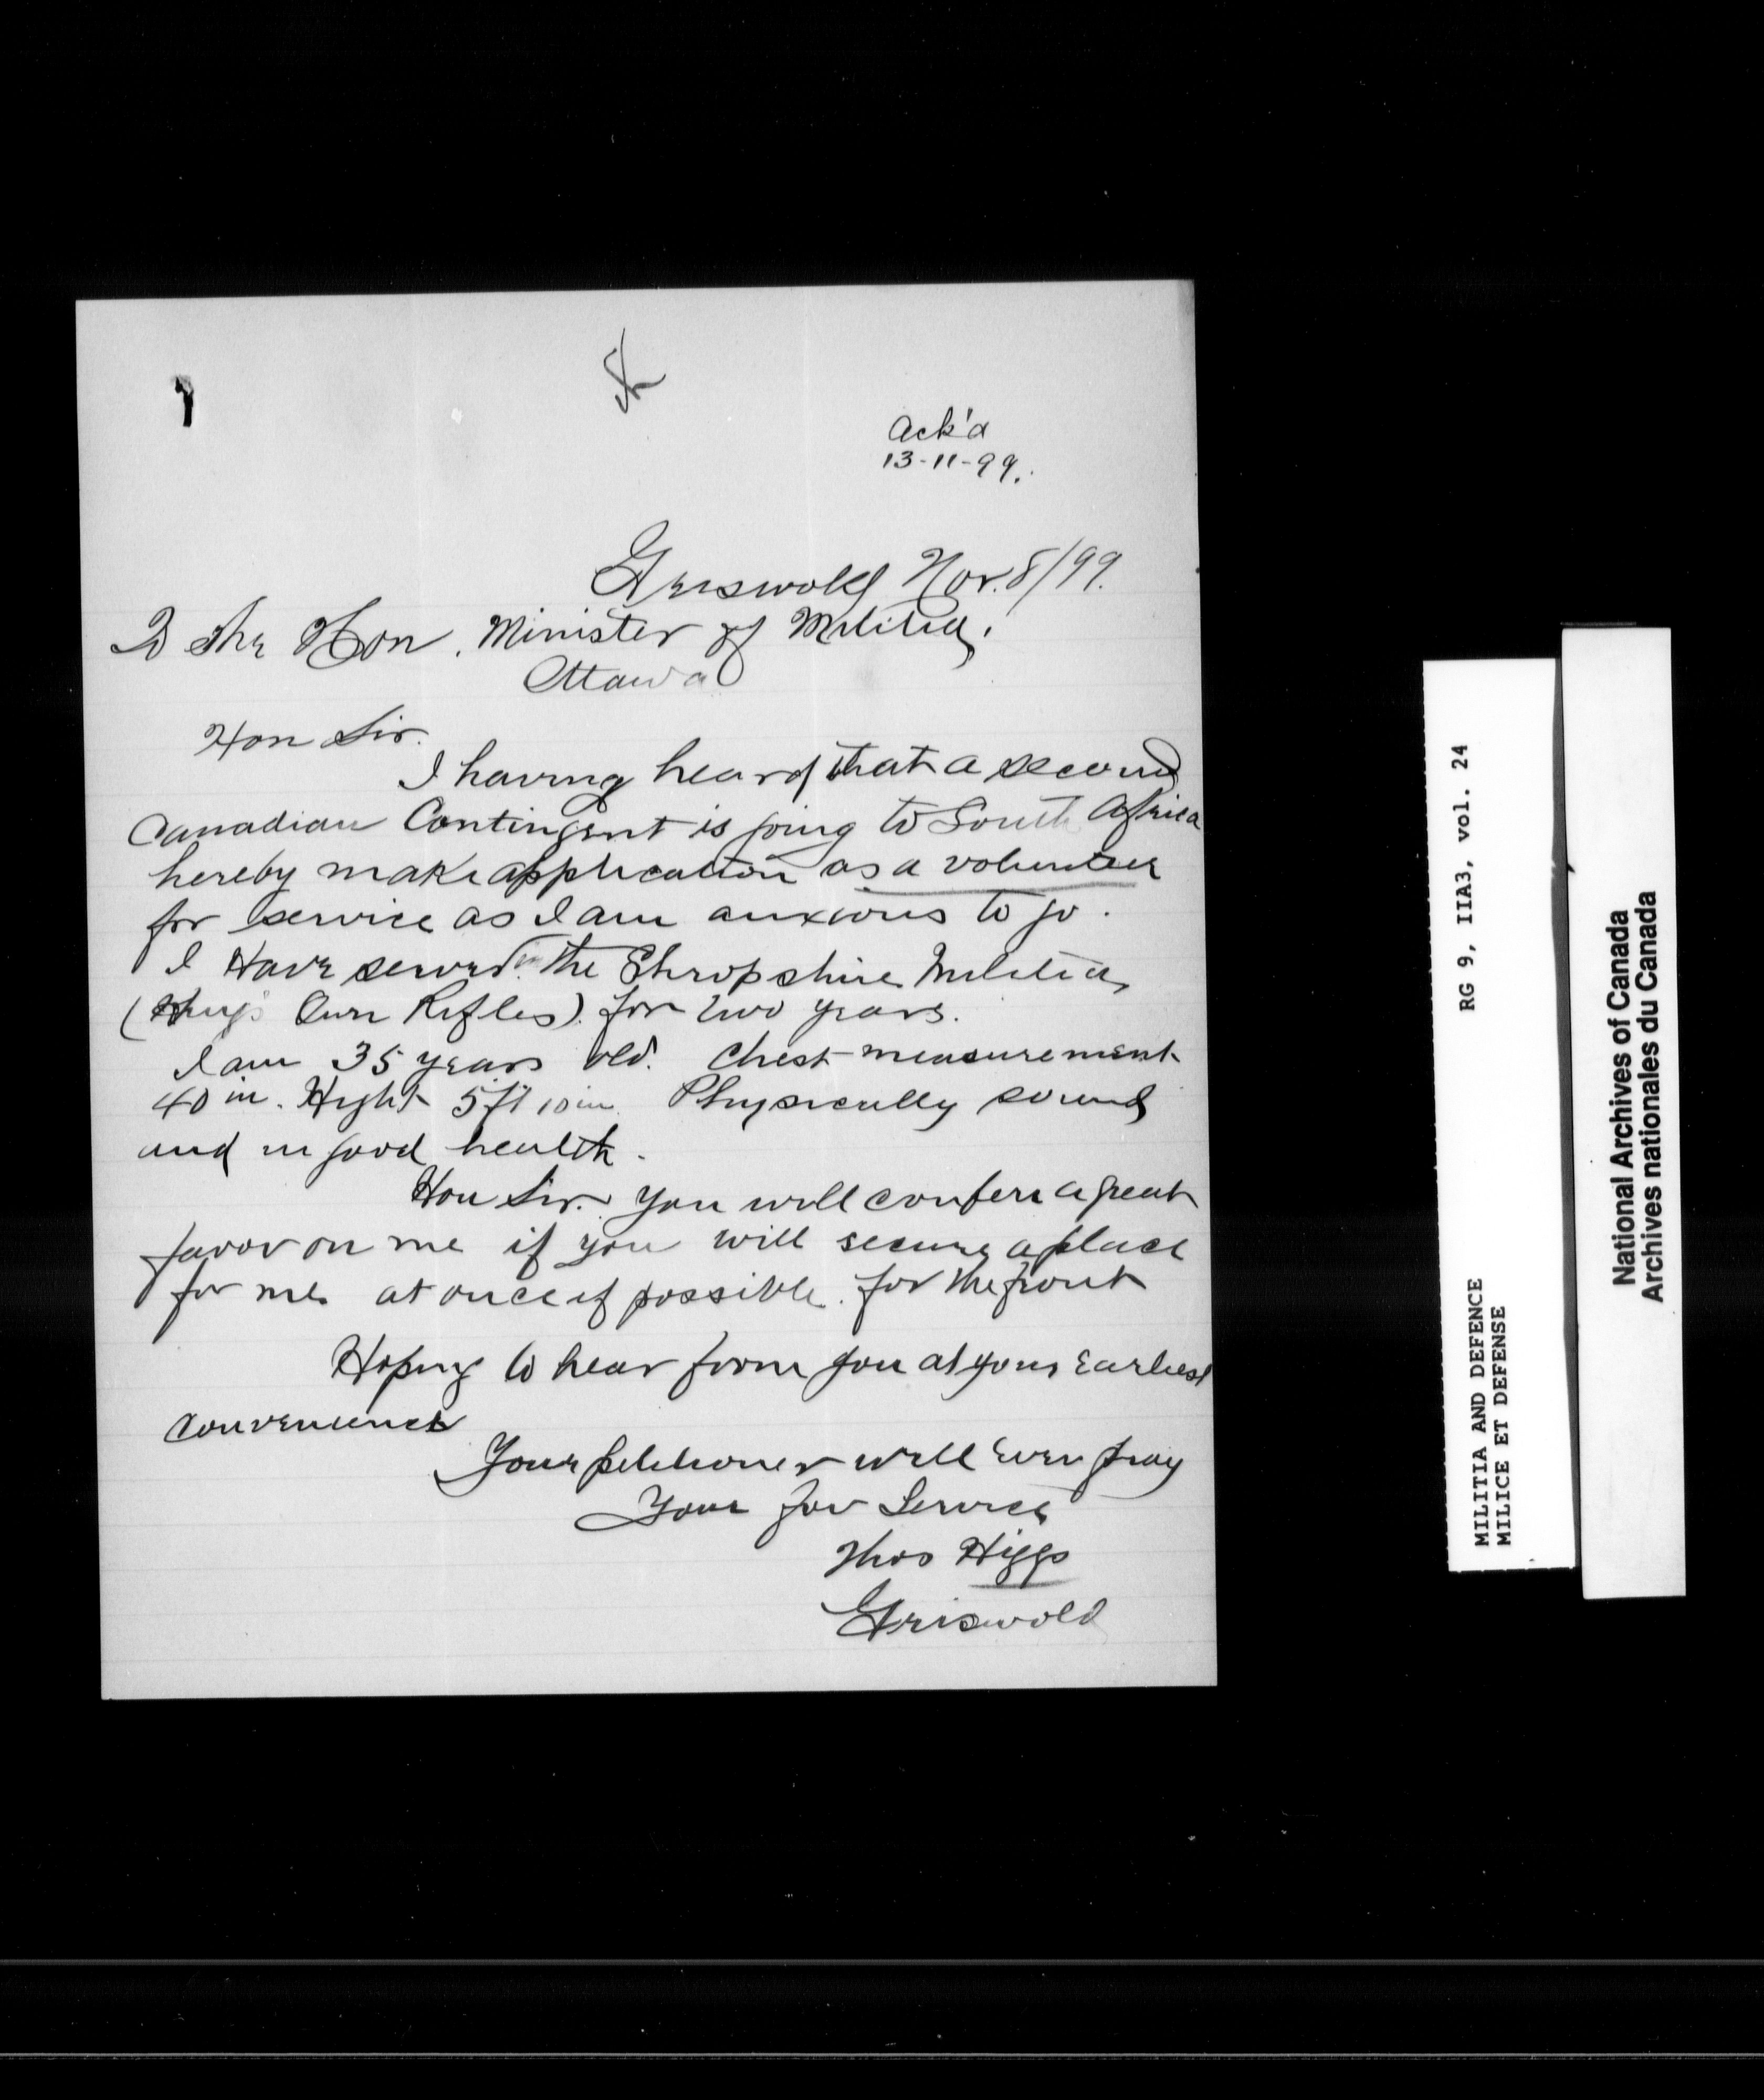 Ack'd
13-11-99.
Griswold Nov. 8/99.
To the Hon. Minister of Militia,
Ottawa
Hon Sir.
I having heard that a second
Canadian Contingent is going to South Africa
hereby make application as a volunteer
for service as I am anxious to go.
I Have served in the Shropshire Militia,
(King's Own Rifles). for two years.
I am 35 years old. Chest measurement
40 in. Hight 5 ft 10 in. Physically sound
and in good health.
Hon Sir. you will confer a great
favor on me if you will secure a place
for me at once if possible. for the front
Hoping to hear from you at your Earliest
convenience
Your petitioner will Ever pray
Your for Service
Thos Higgs
Griswold
RG 9, IIA3, vol. 24
MILITIA AND DEFENCE
MILICE ET DEFENSE
National Archives of Canada
Archives nationales du Canada